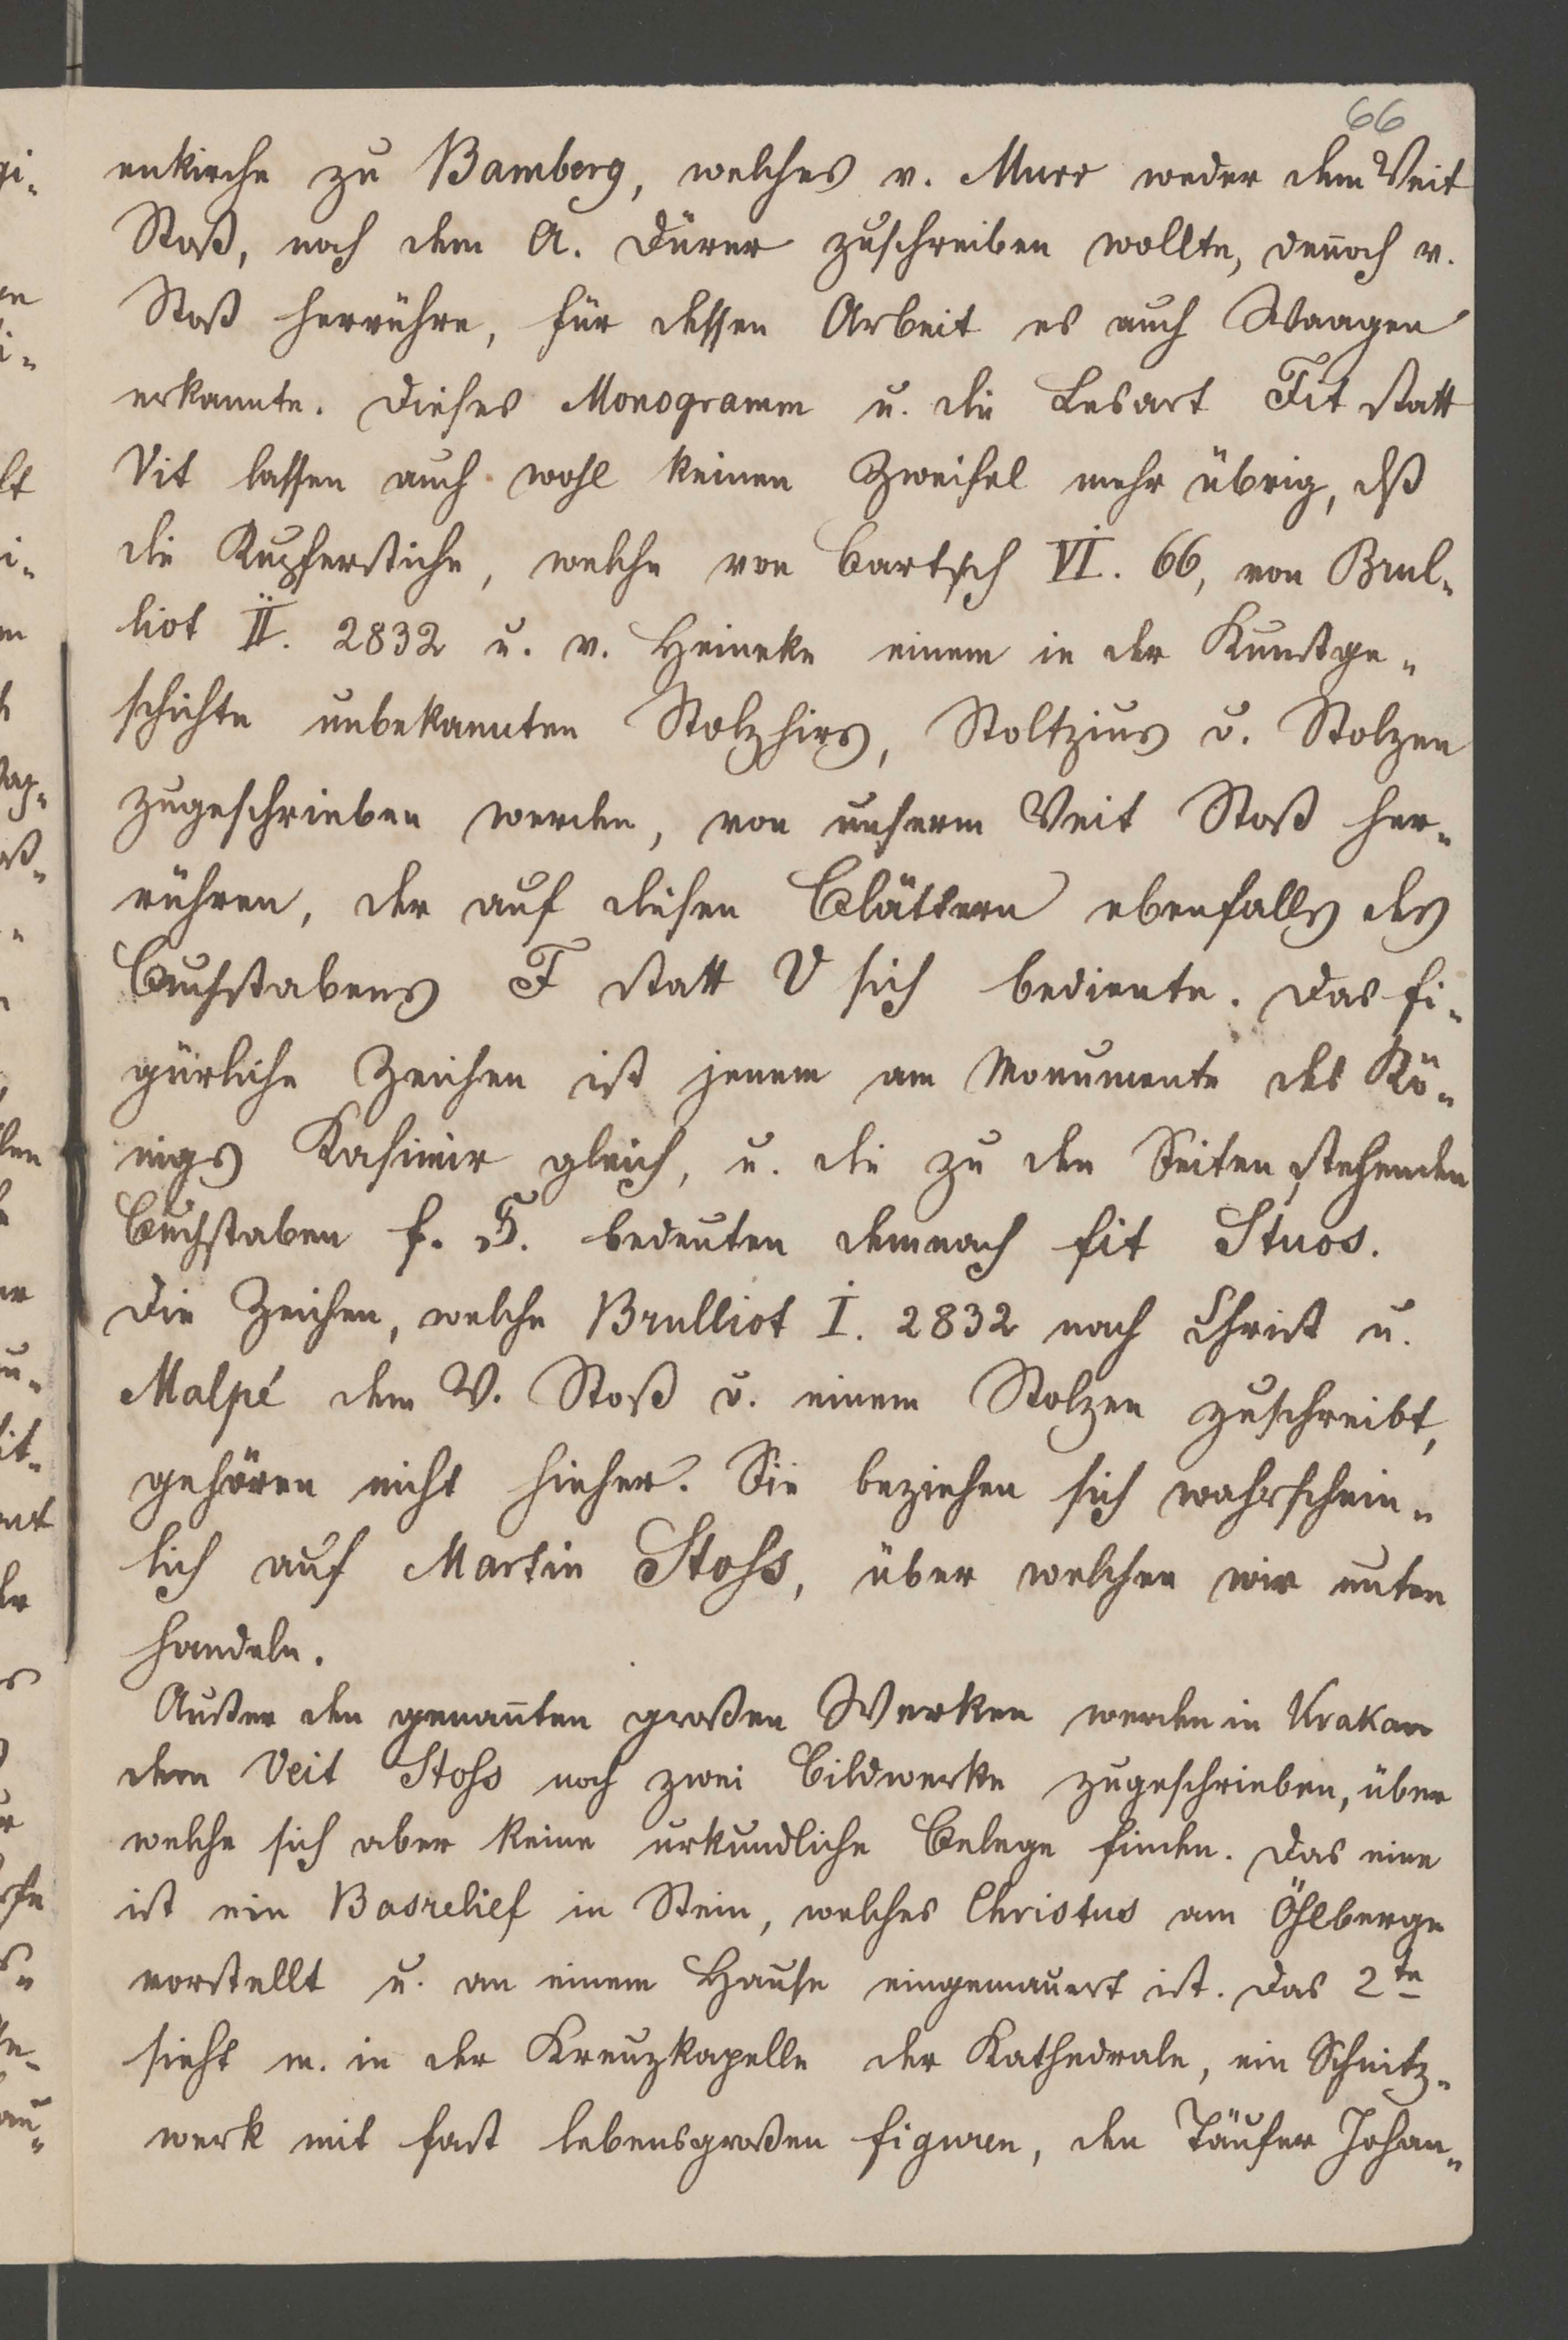 66
enkirche zu Bamberg, welches v. Murr weder dem Veit
Stoß, noch dem A. Dürer zuschreiben wollte, deñoch v.
Stoß herrühre, für dessen Arbeit es auch Waagen
erkannte. Dieses Monogramm u. die Lesart Fit statt
Vit lassen auch wohl keinen Zweifel mehr übrig, dß
die Kupferstiche, welche von Bartsch VI. 66, von Brul-
liot II. 2832 u. v. Heineke einem in der Kunstge-
schichte unbekannten Stolzhirs, Stoltzius o. Stolzen
zugeschrieben werden, von unserm Veit Stoß her-
rühren, der auf diesen Blättern ebenfalls des
Buchstabens F statt V sich bediente. Das fi-
gürliche Zeichen ist jenem am Monumente des Kö-
nigs Kasimir gleich, u. die zu den Seiten stehenden
Buchstaben f. S. bedeuten demnach fit Stuos.
Die Zeichen, welche Brulliot I. 2832 nach Christ u.
Malpé dem V. Stoß o. einem Stolzen zuschreibt,
gehören nicht hieher. Sie beziehen sich wahrschein-
lich auf Martin Stoss, über welchen wir unten
handeln.
Außer den genañten großen Werken werden in Krakau
dem Veit Stoss noch zwei Bildwerke zugeschrieben, über
welche sich aber keine urkundliche Belege finden. Das eine
ist ein Basrelief in Stein, welches Christus am Öhlberge
vorstellt u. an einem Hause eingemauert ist. Das 2te
sieht m. in der Kreuzkapelle der Kathedrale, ein Schnitz-
werk mit fast lebensgroßen Figuren, den Täufer Johan-